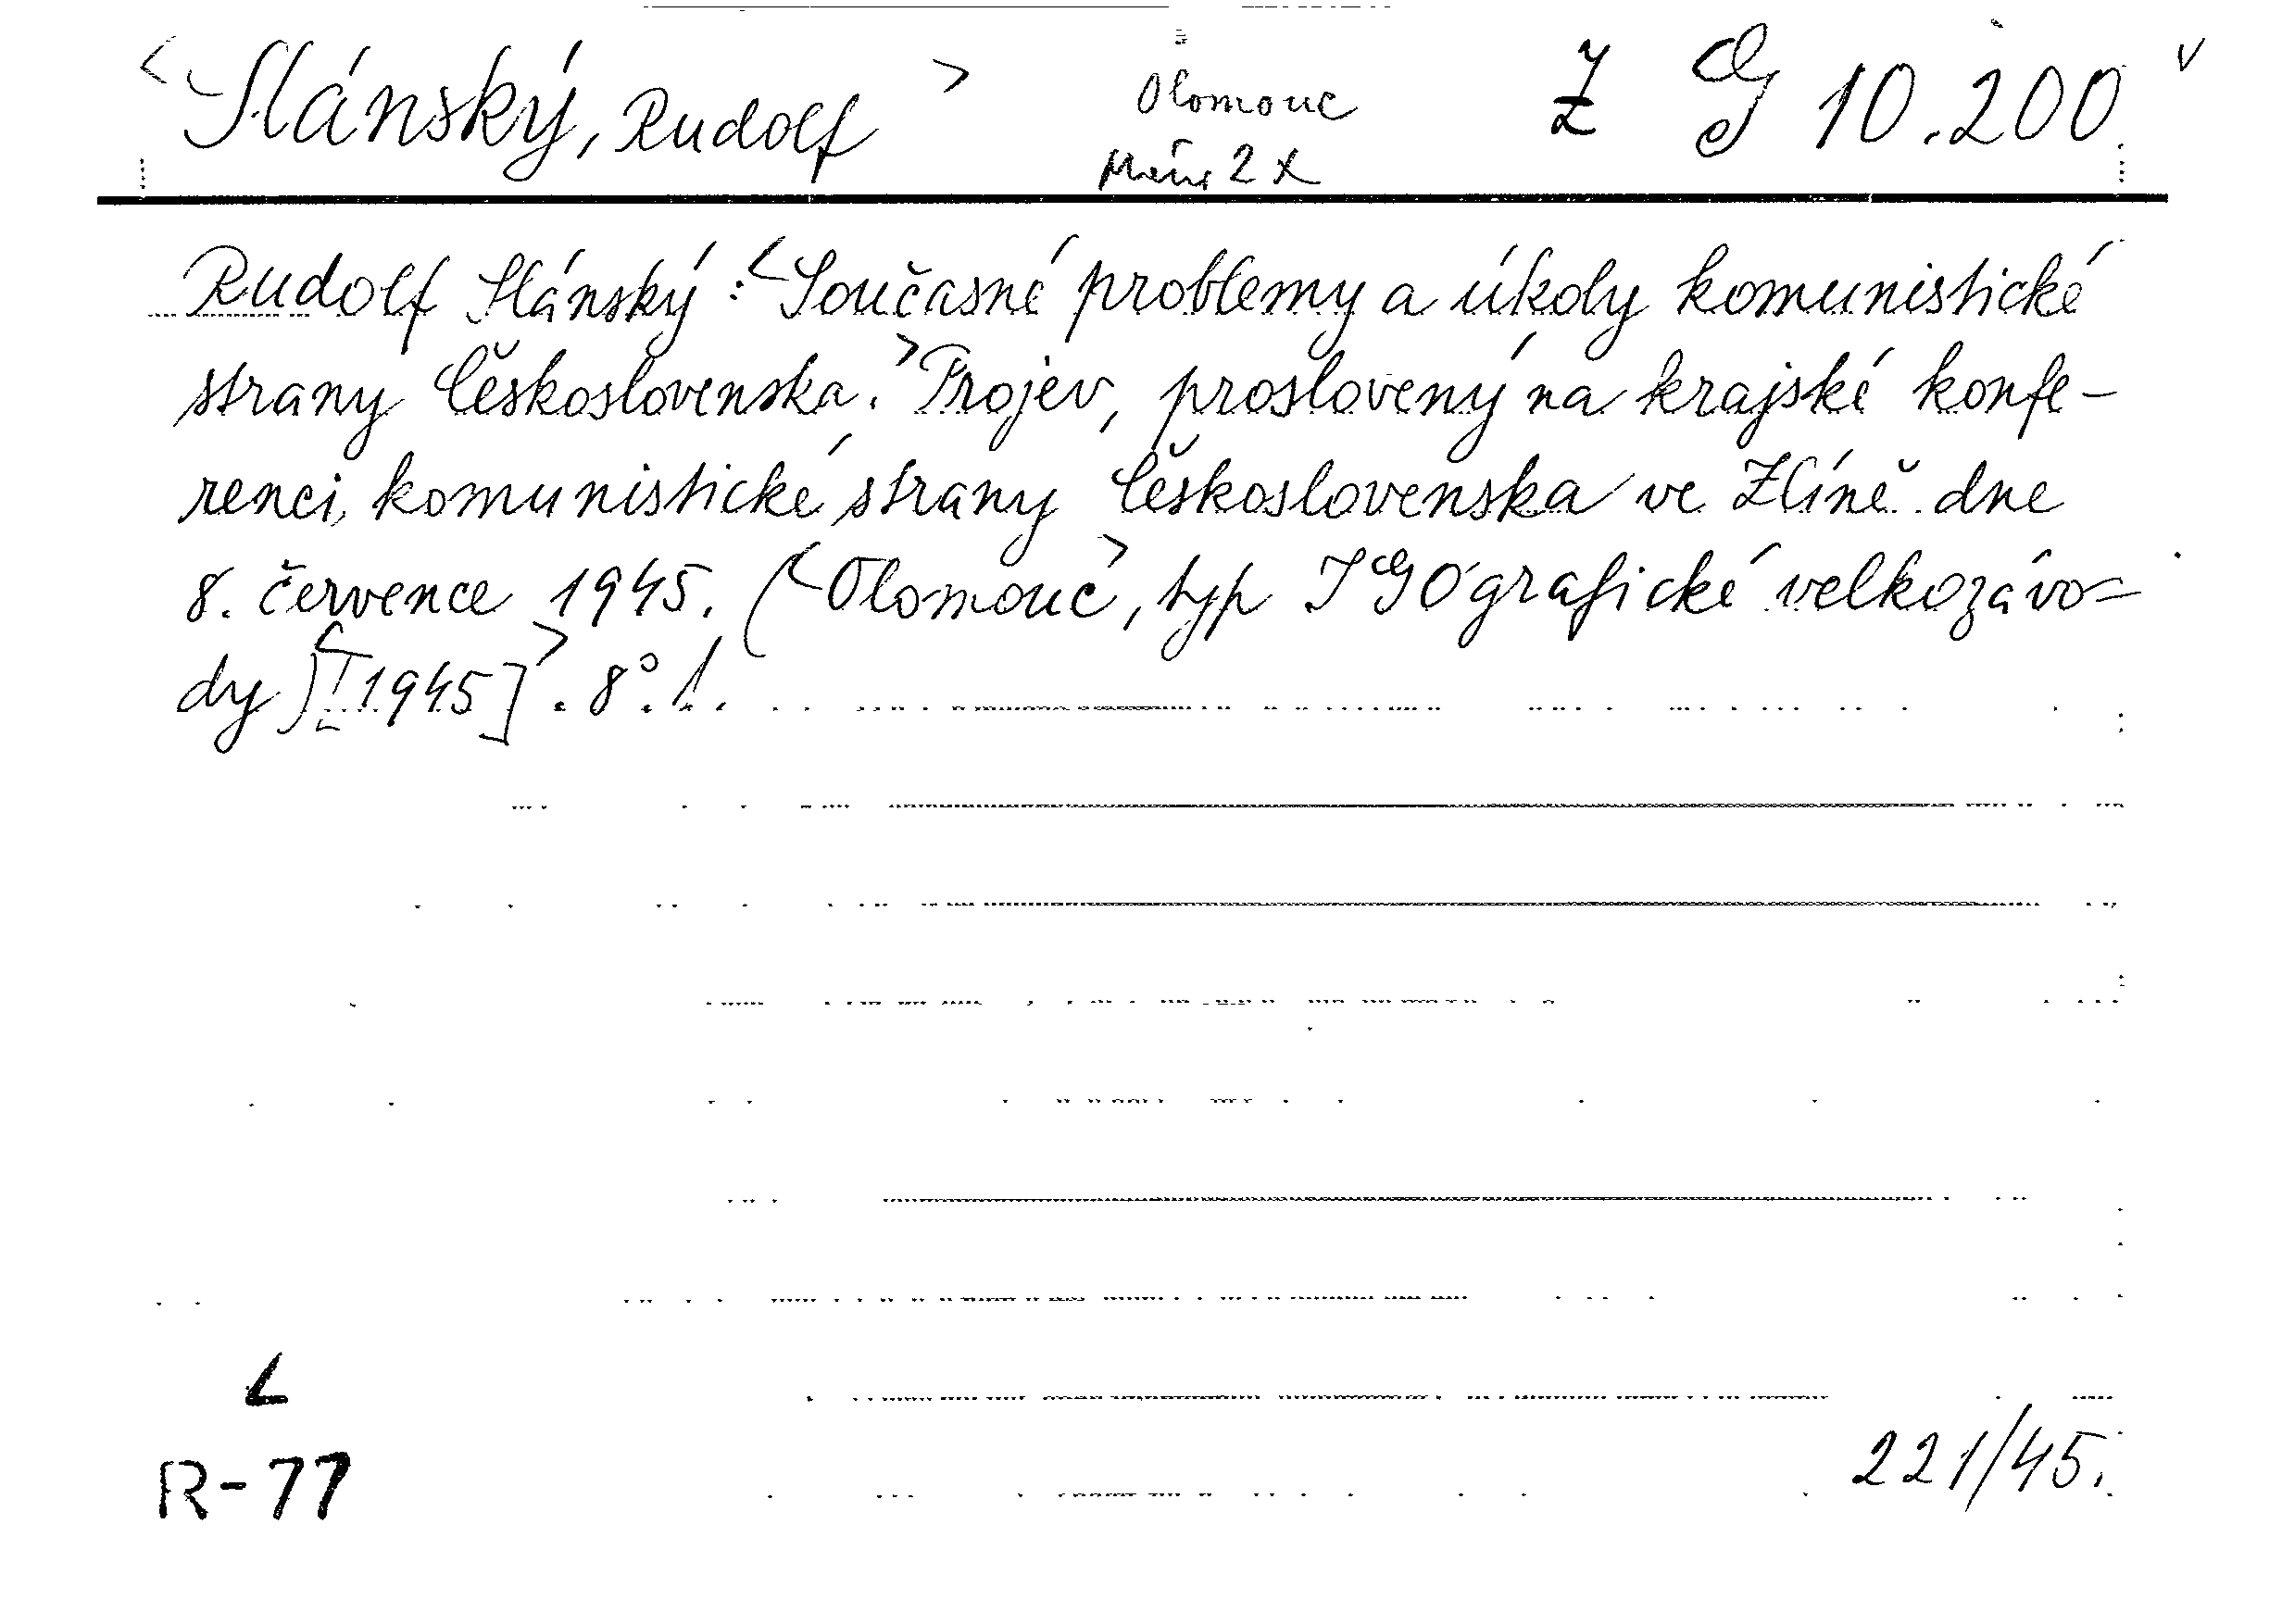 <Slánský, Rudolf> Olomouc Z G 10.200 v
2 x
Rudolf Slánský: <Současné problemy a úkoly komunistické
strany Československa.> Projev, proslovený na krajské konfe-
renci, komunistické strany Československa ve Zlíně dne
8. července 1945. (<Olomouc>, typ IGOgrafické velkozávo-
dy) <[1945]>. 8°. 1.
L
R-77
221/45.